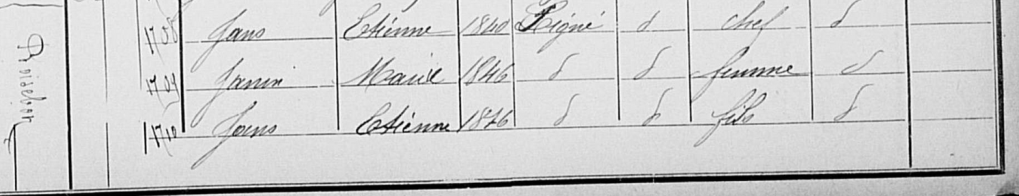 1708 Jans Etienne 1840 Ligné d chef d
1709 Janin Marie 1846 d d femme d
1710 Jans Etienne 1876 d d fils d